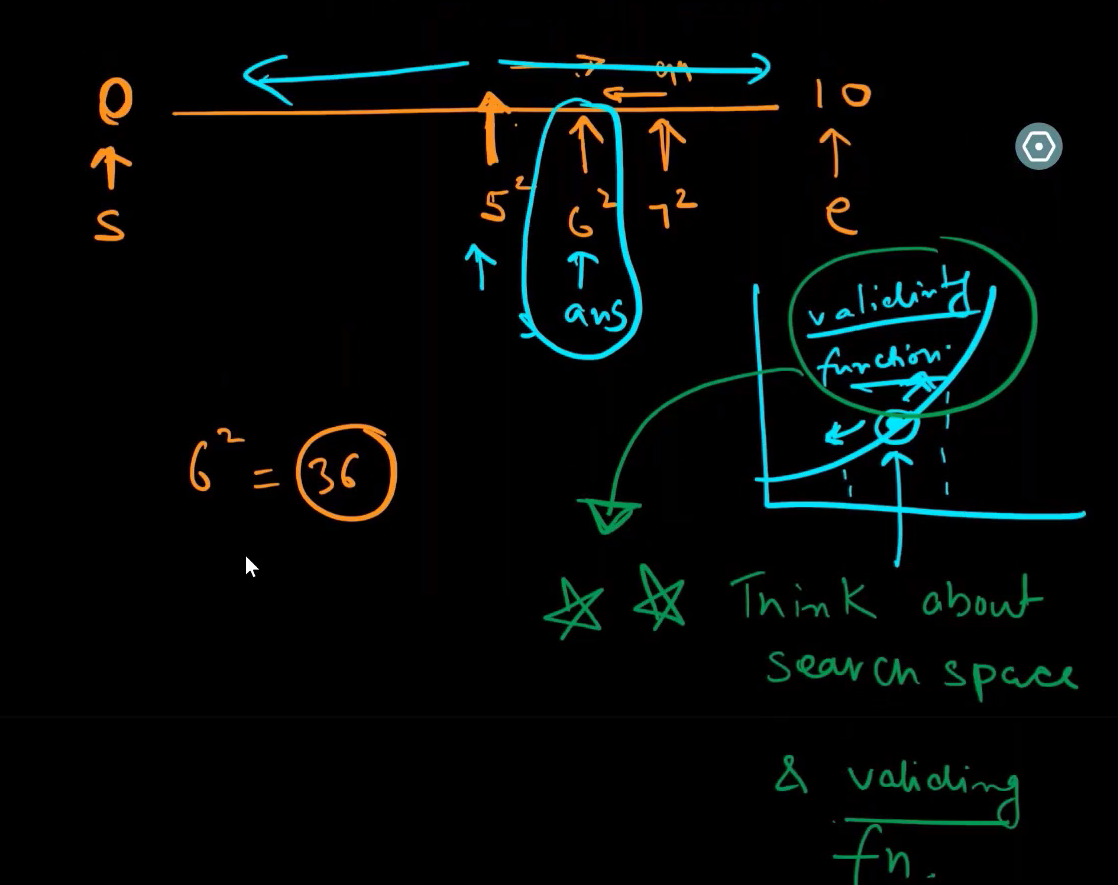 0 10
5² 6² 7²
s e
ans
validing
function
6² = 36
Think about
search space
& validing
fn.